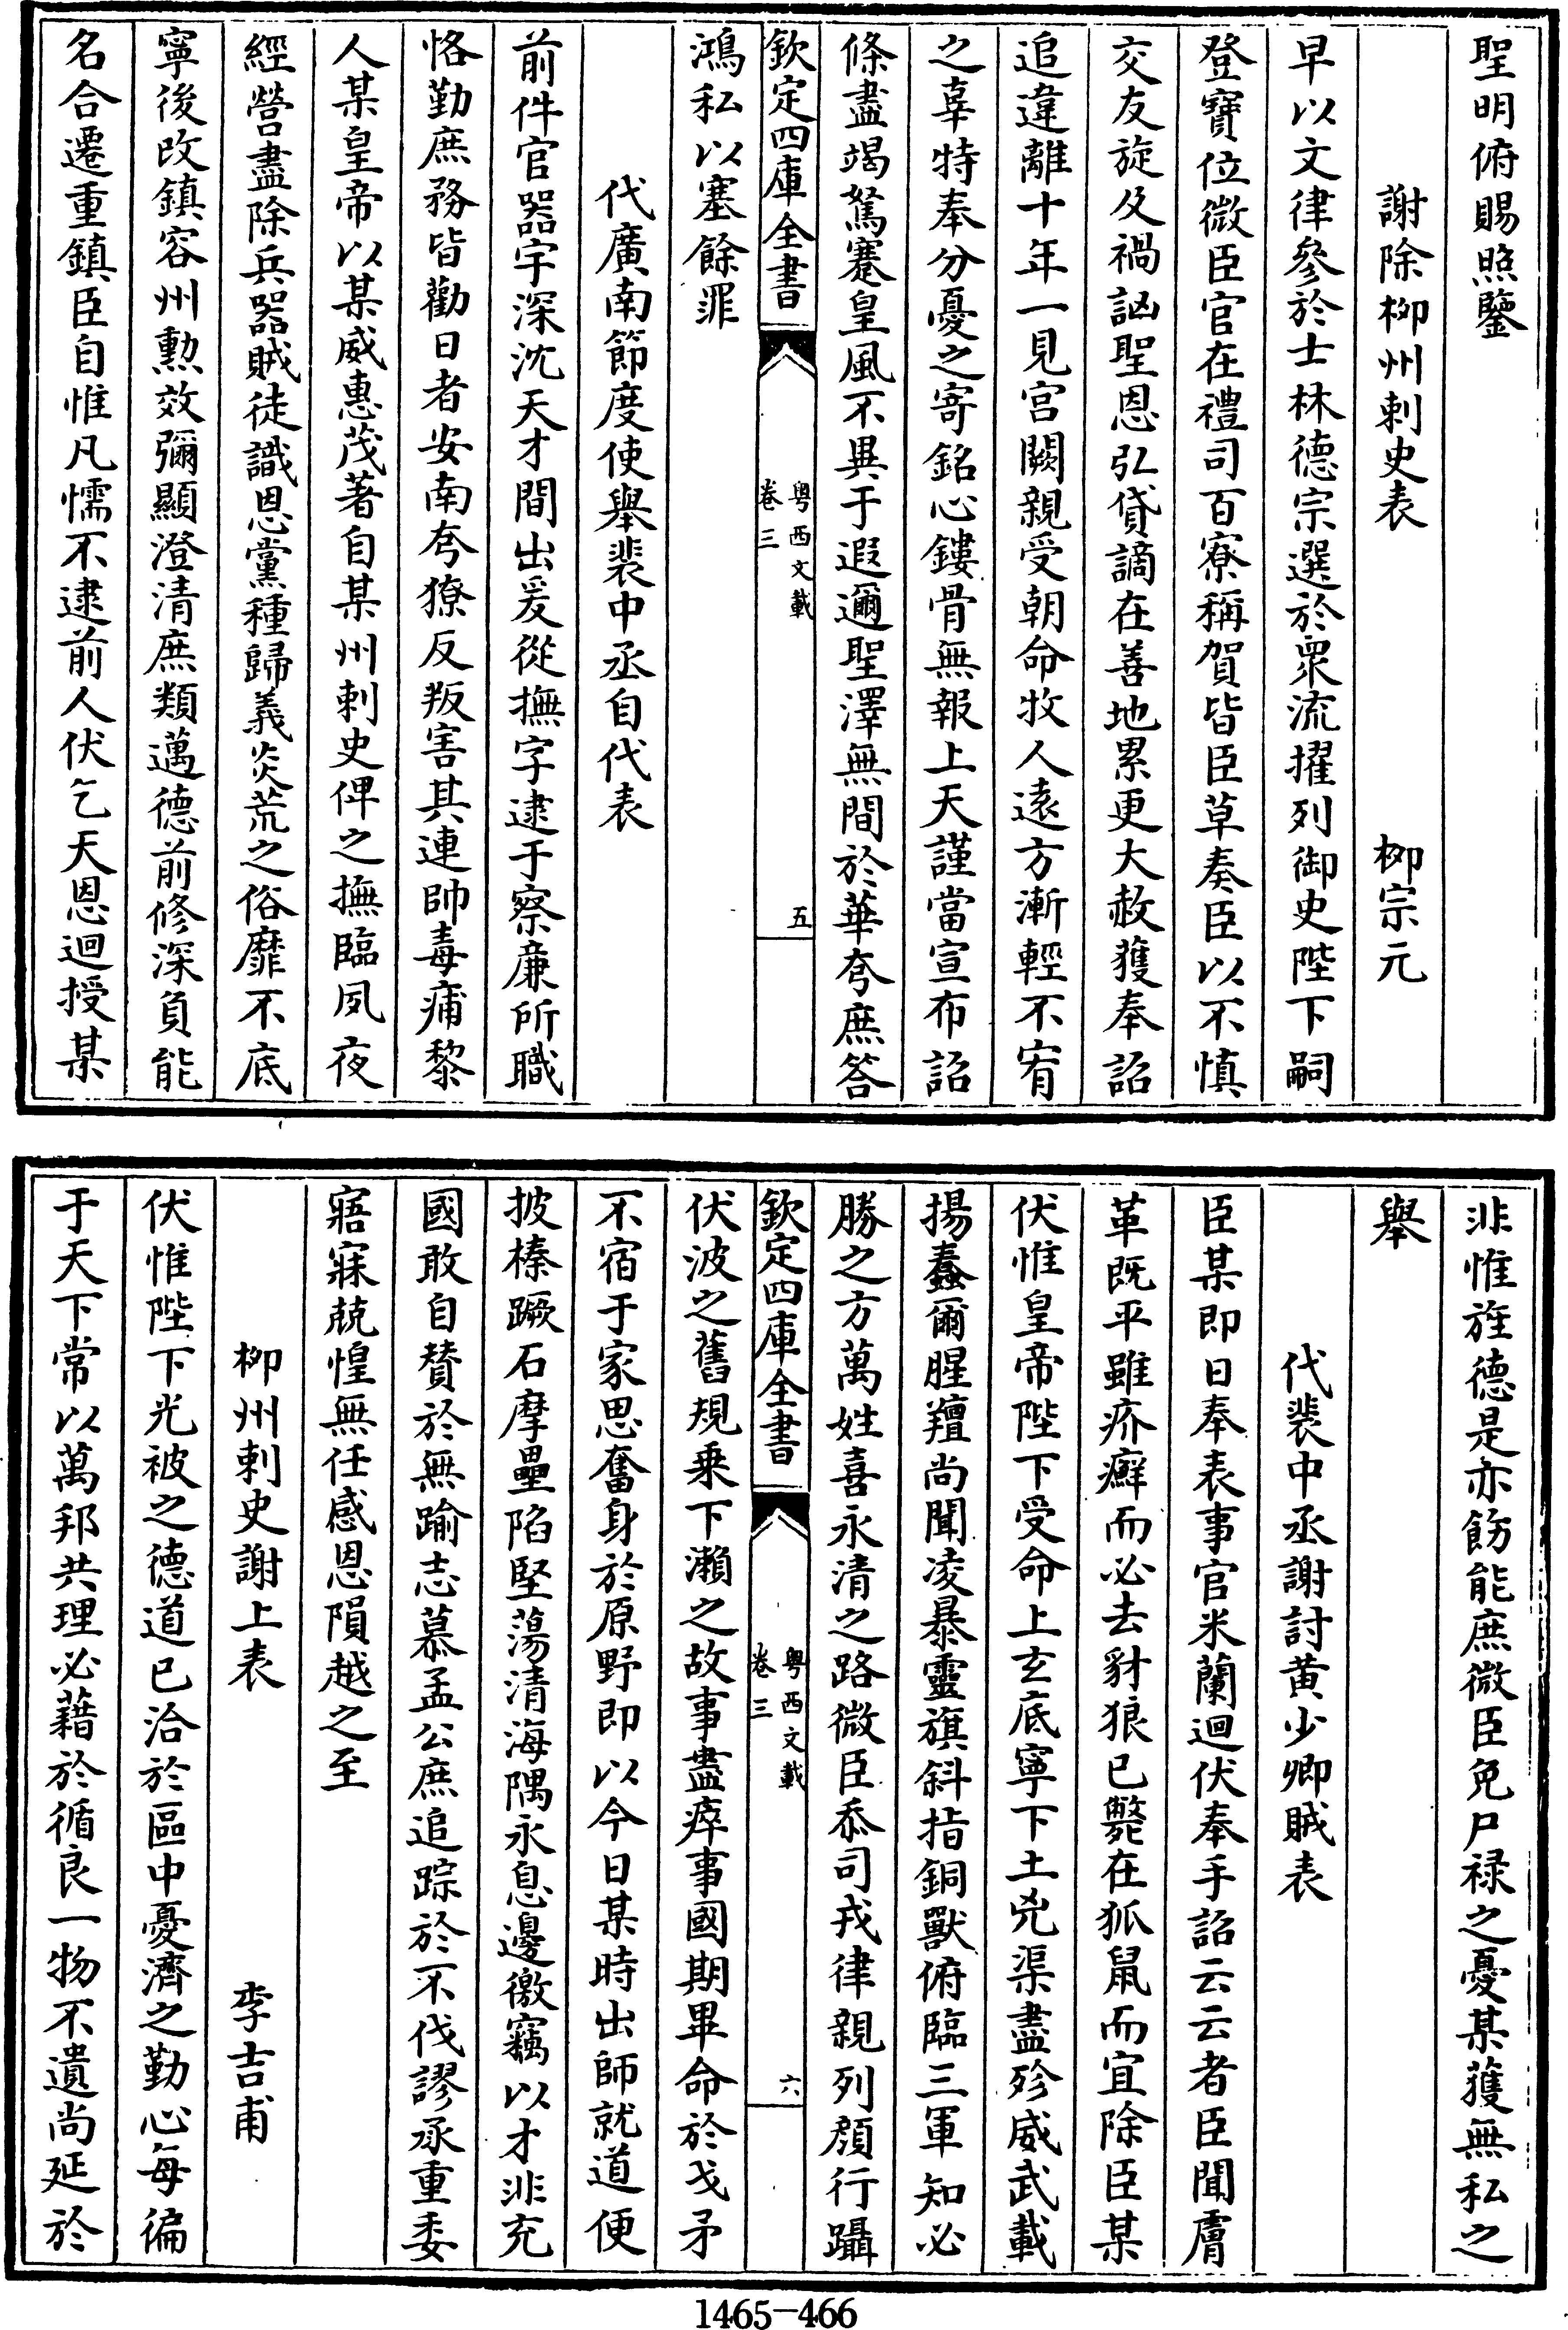 聖明俯賜照鑒
謝除柳州刺史表 柳宗元
早以文律參於士林德宗選於衆流擢列御史陛下嗣
登寶位微臣官在禮司百寮稱賀皆臣草奏臣以不慎
交友旋及禍訩聖恩弘貸謫在善地累更大赦獲奉詔
追違離十年一見宮闕親受朝命牧人遠方漸輕不宥
之辜特奉分憂之寄銘心鏤骨無報上天謹當宣布詔
條盡竭駑蹇皇風不異于遐邇聖澤無間於華夸庶答
欽定四庫全書 粤西文載 卷三 五
鴻私以塞餘罪
代廣南節度使舉裴中丞自代表
前件官器宇深沈天才間出爰從撫字逮于察廉所職
恪勤庶務皆勸日者安南夸獠反叛害其連帥毒痡黎
人某皇帝以某威惠茂著自某州刺史俾之撫臨夙夜
經營盡除兵器賊徒識恩黨種歸義炎荒之俗靡不底
寧後改鎮容州勲效彌顯澄清庶類邁德前修深負能
名合遷重鎮臣自惟凡懦不逮前人伏乞天恩迴授某
非惟旌德是亦飭能庶微臣免尸禄之憂某獲無私之
舉
代裴中丞謝討黄少卿賊表
臣某即日奉表事官米蘭迴伏奉手詔云云者臣聞膚
革既平雖疥癬而必去豺狼已斃在狐鼠而宜除臣某
伏惟皇帝陛下受命上玄底寧下土兇渠盡殄威武載
揚蠢爾腥羶尚聞凌暴靈旗斜指銅獸俯臨三軍知必
勝之方萬姓喜永清之路微臣忝司戎律親列顔行躡
欽定四庫全書 粤西文載 卷三 六
伏波之舊規乗下瀨之故事盡瘁事國期畢命於戈矛
不宿于家思奮身於原野即以今日某時出師就道便
披榛蹶石摩壘陷堅蕩清海隅永息邊徼竊以才非充
國敢自賛於無踰志慕孟公庶追踪於不伐謬承重委
寤寐兢惶無任感恩隕越之至
柳州刺史謝上表 李吉甫
伏惟陛下光被之德道已洽於區中憂濟之勤心每徧
于天下常以萬邦共理必藉於循良一物不遺尚延於
1465-466